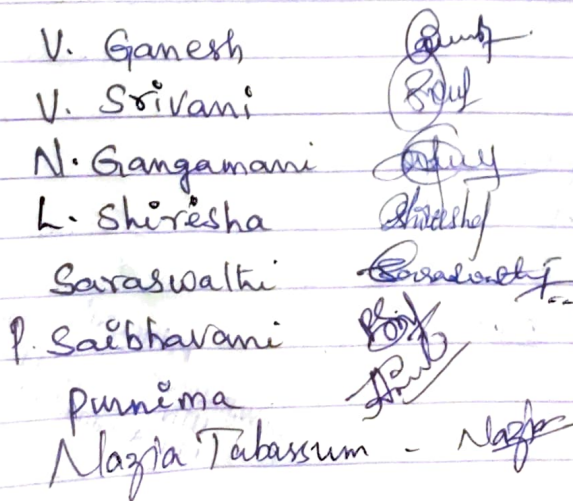 V. Ganesh
V. Srivani
N. Gangamani
L. Shirësha Shirësha
Saraswathi Saraswathi
P. Saibhavani
Purnima
Nazia Tabassum - Nazia